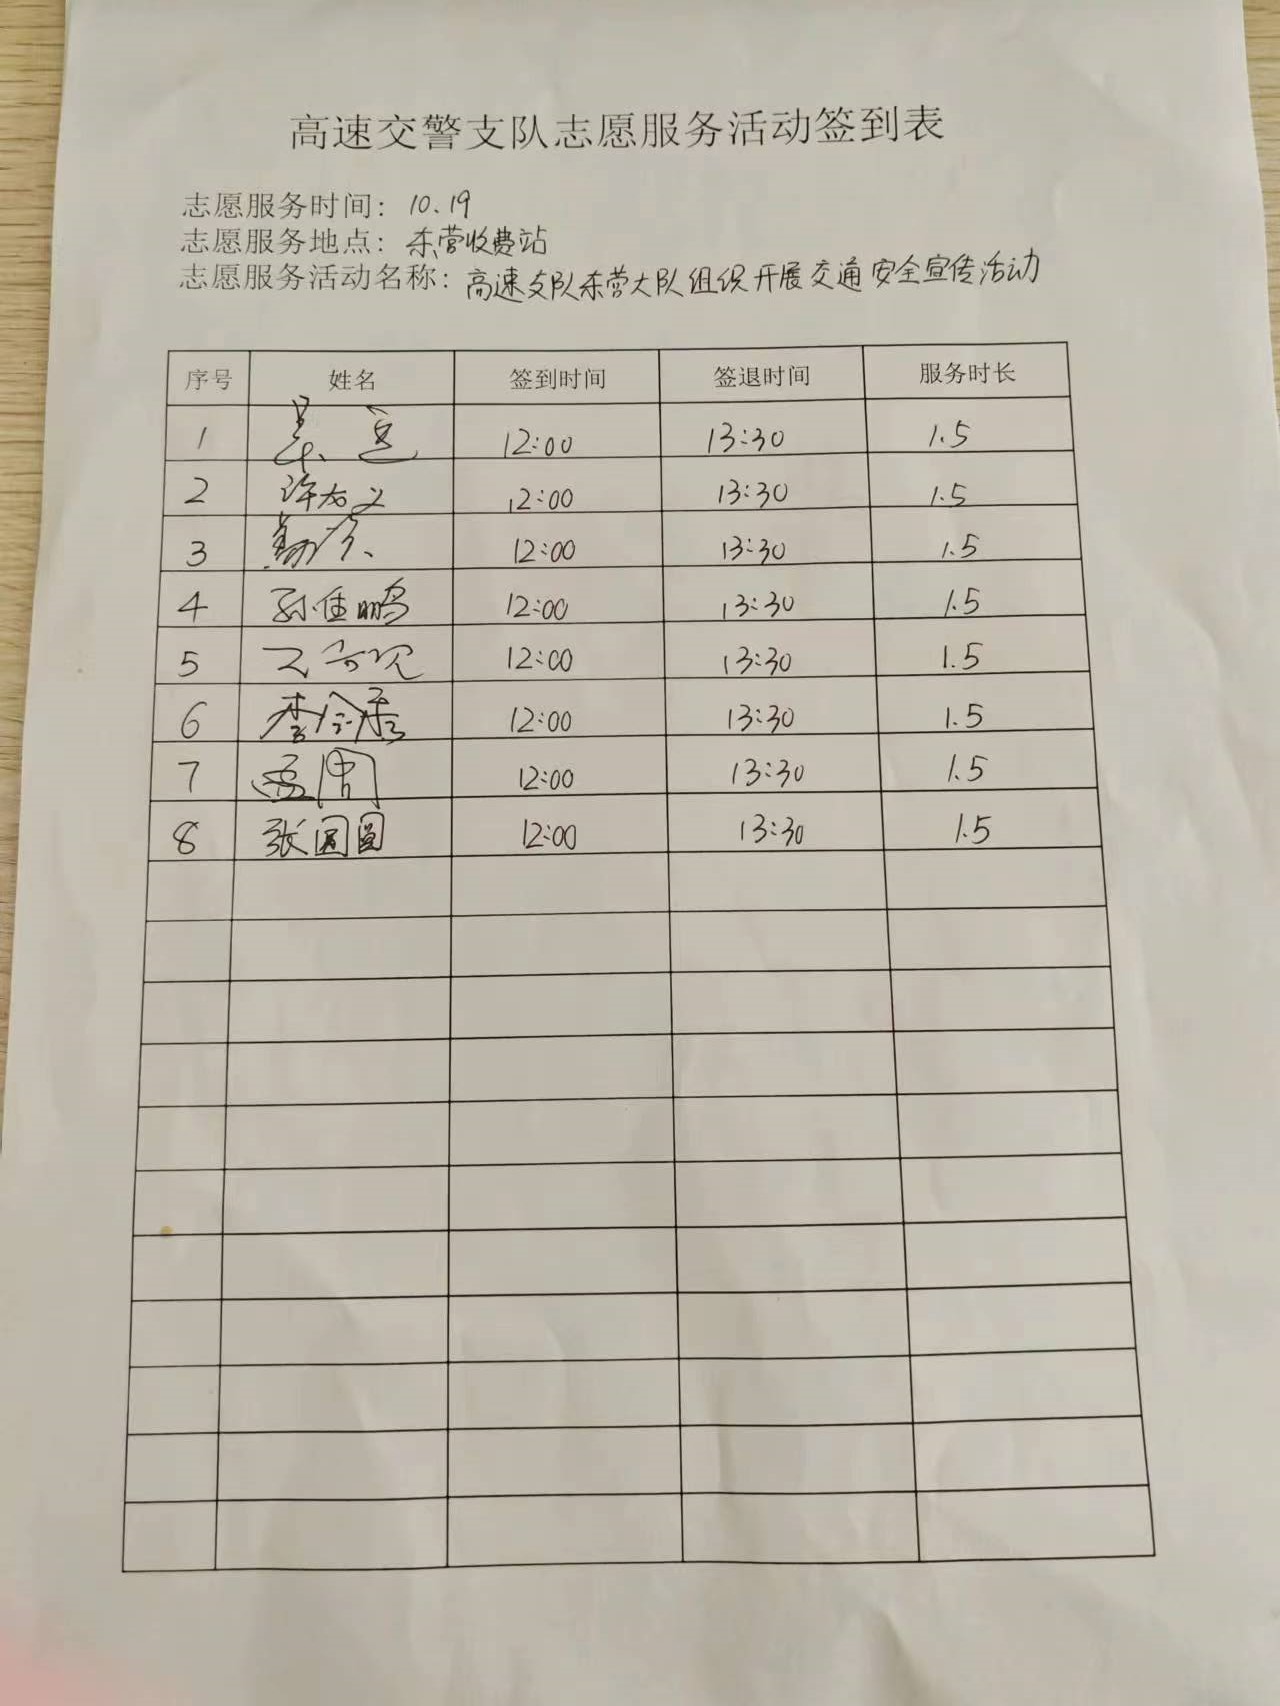 高速交警支队志愿服务活动签到表
志愿服务时间：10.19
志愿服务地点：东营收费站
志愿服务活动名称：高速支队东营大队组织开展交通安全宣传活动
序号 姓名 签到时间 签退时间 服务时长
1 12:00 13:30 1.5
2 12:00 13:30 1.5
3 12:00 13:30 1.5
4 孙佳鹏 12:00 13:30 1.5
5 12:00 13:30 1.5
6 12:00 13:30 1.5
7 12:00 13:30 1.5
8 张圆圆 12:00 13:30 1.5